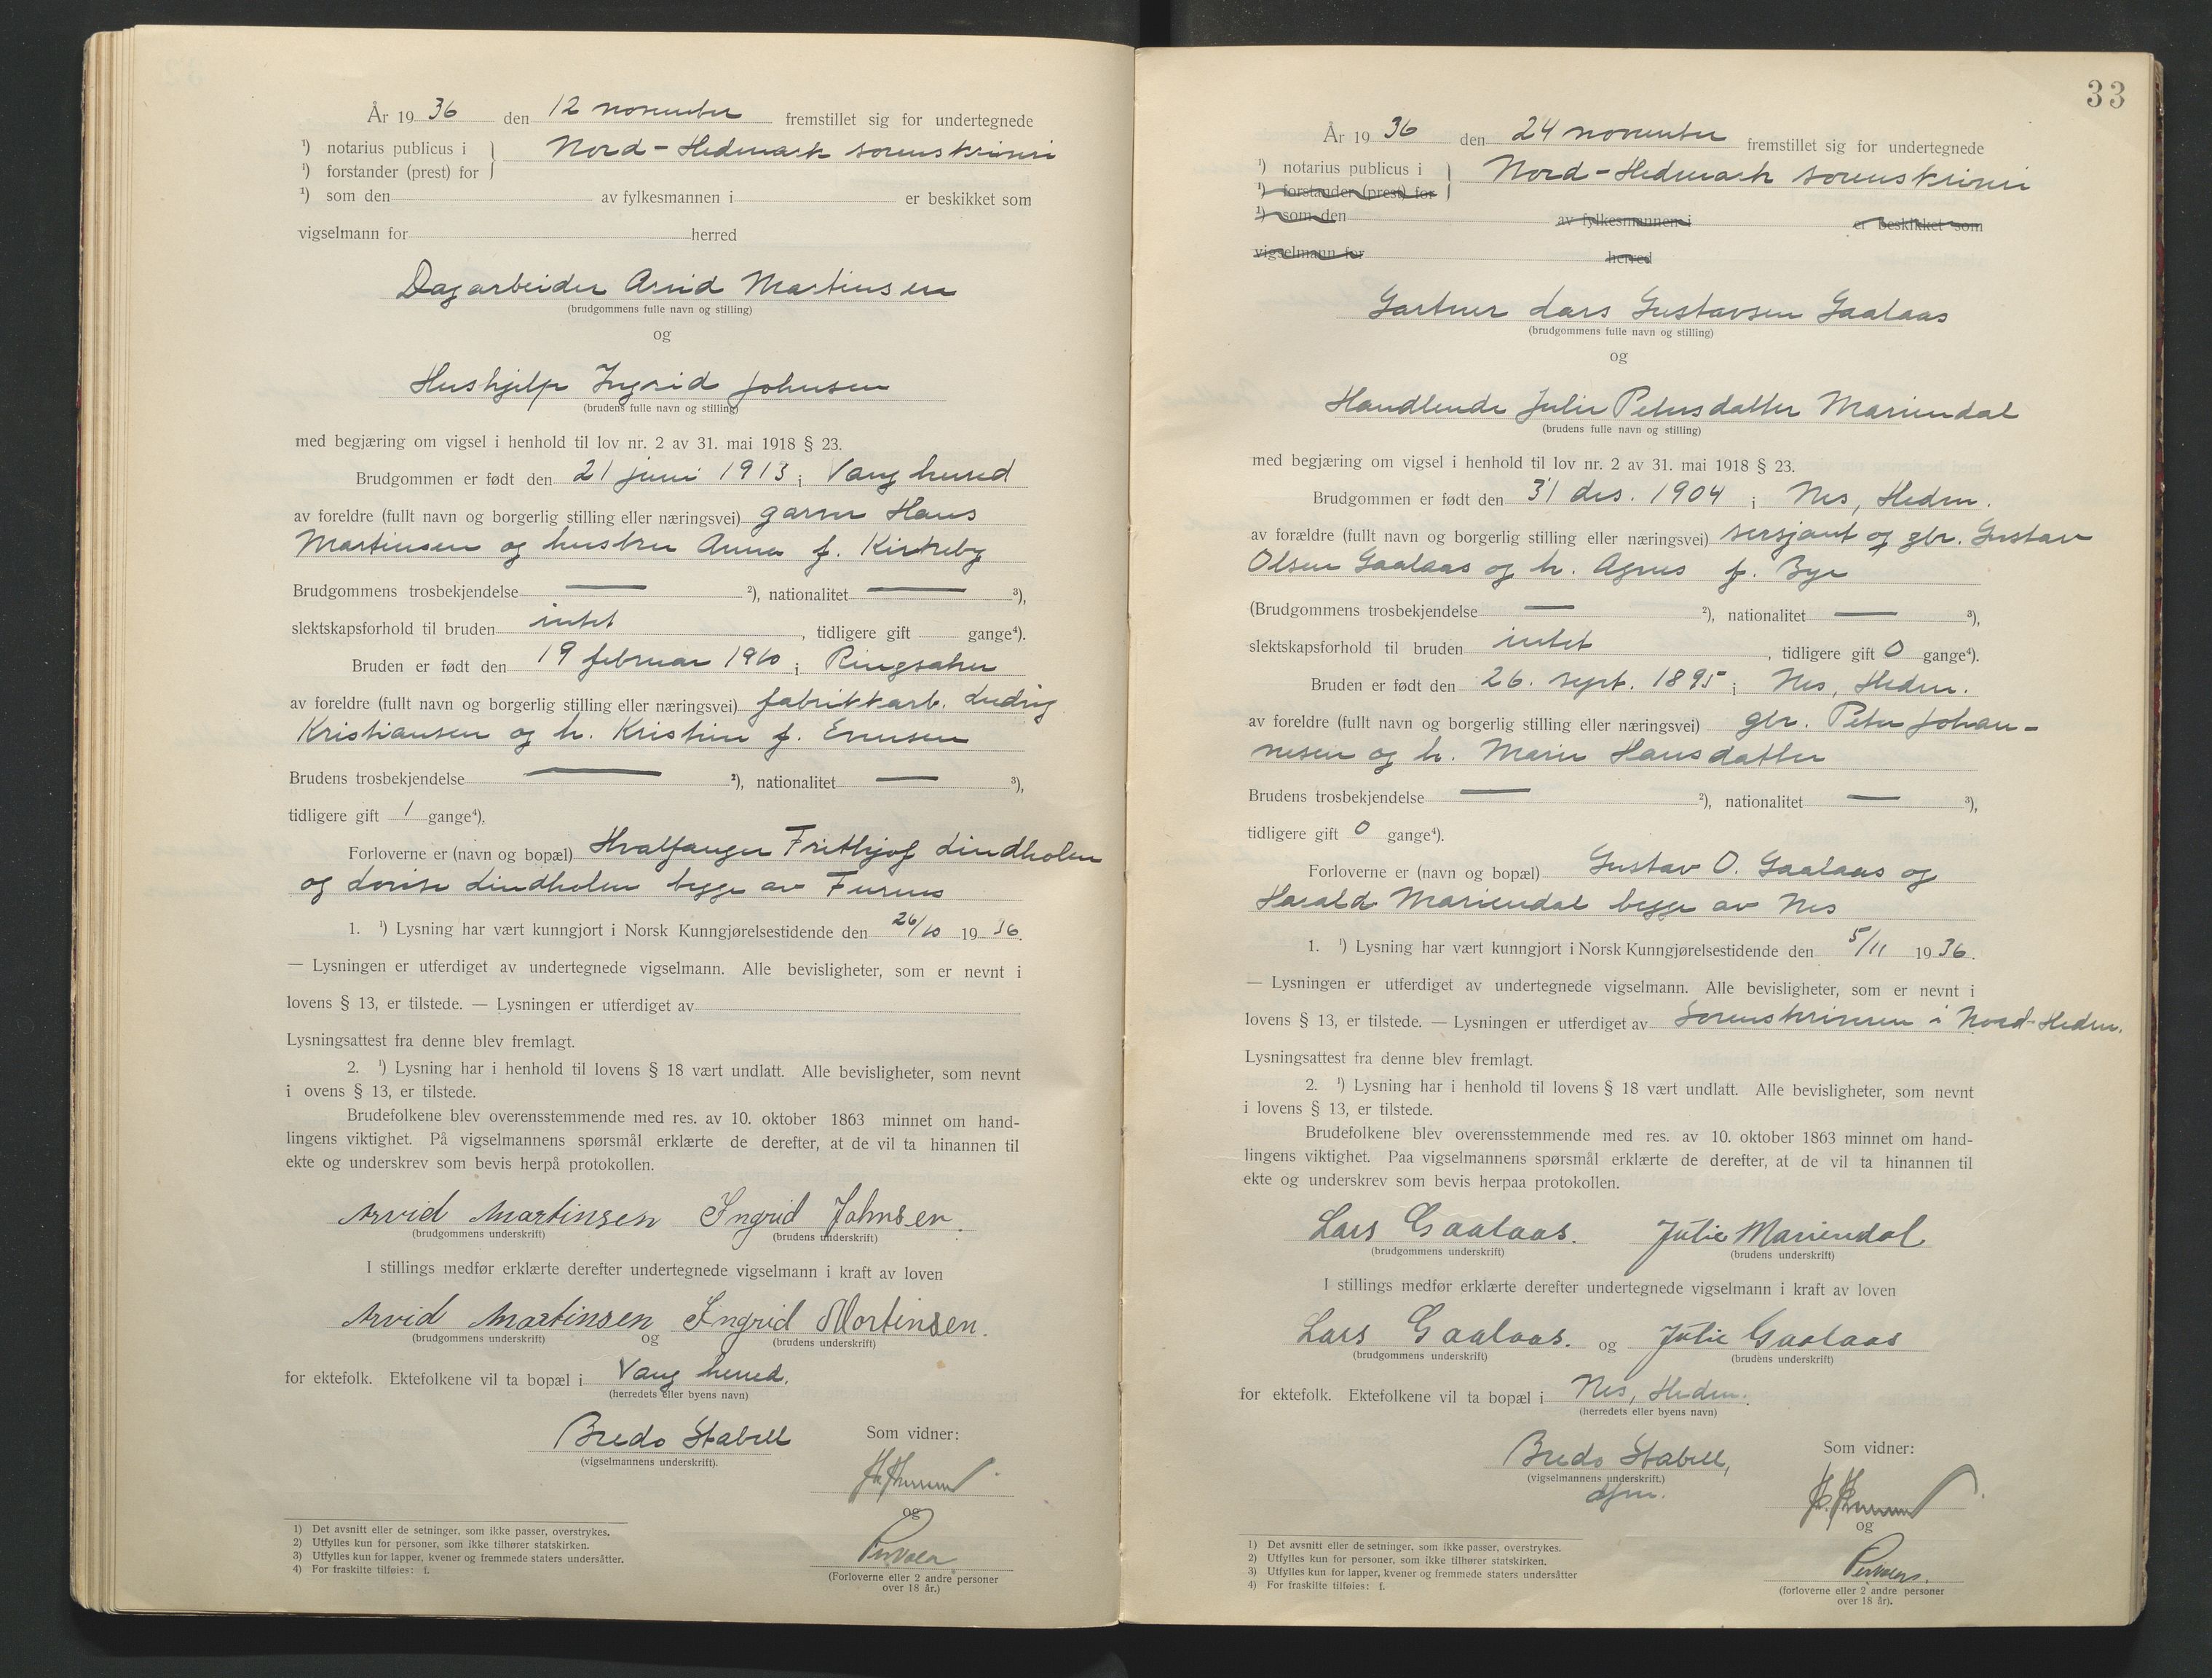 År 1936 den 12 november fremstillet sig for undertegnede
¹) notarius publicus i } Nord-Hedmark sorenskriveri
¹) forstander (prest) for
¹) som den av fylkesmannen i er beskikket som
vigselmann for herred
Dagarbeider Arvid Martinsen
(brudgommens fulle navn og stilling)
og
Hushjelp Ingrid Johnsen
(brudens fulle navn og stilling)
med begjæring om vigsel i henhold til lov nr. 2 av 31. mai 1918 § 23.
Brudgommen er født den 21 juni 1913 i Vang herred
av foreldre (fullt navn og borgerlig stilling eller næringsvei) garver Hans
Martinsen og hustru Anna f. Kirkeby
Brudgommens trosbekjendelse — ²), nationalitet — ³),
slektskapsforhold til bruden intet, tidligere gift gange⁴).
Bruden er født den 19 februar 1910 i Ringsaker
av foreldre (fullt navn og borgerlig stilling eller næringsvei) fabrikkarb. Ludvig
Kristiansen og h. Kristine f. Evensen
Brudens trosbekjendelse — ²), nationalitet — ³),
tidligere gift 1 gange⁴).
Forloverne er (navn og bopæl) Hvalfanger Frithjof Lindholen
og Lovise Lindholen begge av Furnes
1. ¹) Lysning har vært kunngjort i Norsk Kunngjørelsestidende den 26/10 1936.
— Lysningen er utferdiget av undertegnede vigselmann. Alle bevisligheter, som er nevnt i
lovens § 13, er tilstede. — Lysningen er utferdiget av
Lysningsattest fra denne blev fremlagt.
2. ¹) Lysning har i henhold til lovens § 18 vært undlatt. Alle bevisligheter, som nevnt
i ovens § 13, er tilstede.
Brudefolkene blev overensstemmende med res. av 10. oktober 1863 minnet om hand-
lingens viktighet. På vigselmannens spørsmål erklærte de derefter, at de vil ta hinannen til
ekte og underskrev som bevis herpå protokollen.
Arvid Martinsen Ingrid Johnsen.
(brudgommens underskrift) (brudens underskrift)
I stillings medfør erklærte derefter undertegnede vigselmann i kraft av loven
Arvid Martinsen og Ingrid Martinsen.
(brudgommens underskrift) (brudens underskrift)
for ektefolk. Ektefolkene vil ta bopæl i Vang herred.
(herredets eller byens navn)
Bredo Stabell
(vigselmannens underskrift).
Som vidner:
og
(Forloverne eller 2 andre personer
over 18 år.)
1) Det avsnitt eller de setninger, som ikke passer, overstrykes.
2) Utfylles kun for personer, som ikke tilhører statskirken.
3) Utfylles kun for lapper, kvener og fremmede staters undersåtter.
4) For fraskilte tilføies: f.
33
År 1936 den 24 november fremstillet sig for undertegnede
¹) notarius publicus i } Nord-Hedmark sorenskriveri
¹) forstander (prest) for
¹) som den av fylkesmannen i er beskikket som
vigselmann for herred
Gartner Lars Gustavsen Gaalaas
(brudgommens fulle navn og stilling)
og
Handlende Julie Petersdatter Mariendal
(brudens fulle navn og stilling)
med begjæring om vigsel i henhold til lov nr. 2 av 31. mai 1918 § 23.
Brudgommen er født den 31 des. 1904 i Nes, Hedm.
av forældre (fullt navn og borgerlig stilling eller næringsvei) sersjant og gbr. Gustav
Olsen Gaalaas og h. Agnes f. Bye
(Brudgommens trosbekjendelse — ²), nationalitet — ³),
slektskapsforhold til bruden intet, tidligere gift 0 gange⁴).
Bruden er født den 26. sept. 1895 i Nes, Hedm.
av foreldre (fullt navn og borgerlig stilling eller næringsvei) gbr. Peter Johan-
nesen og h. Marie Hansdatter
Brudens trosbekjendelse — ²), nationalitet — ³),
tidligere gift 0 gange⁴).
Forloverne er (navn og bopæl) Gustav O. Gaalaas og
Harald Mariendal begge av Nes
1. ¹) Lysning har vært kunngjort i Norsk Kunngjørelsestidende den 5/11 1936.
— Lysningen er utferdiget av undertegnede vigselmann. Alle bevisligheter, som er nevnt i
lovens § 13, er tilstede. — Lysningen er utferdiget av Sorenskriveren i Nord-Hedm.
Lysningsattest fra denne blev fremlagt.
2. ¹) Lysning har i henhold til lovens § 18 vært undlatt. Alle bevisligheter, som nevnt
i lovens § 13, er tilstede.
Brudefolkene blev overensstemmende med res. av 10. oktober 1863 minnet om hand-
lingens viktighet. Paa vigselmannens spørsmål erklærte de derefter, at de vil ta hinannen til
ekte og underskrev som bevis herpaa protokollen.
Lars Gaalaas. Julie Mariendal
(brudgommens underskrift) (brudens underskrift)
I stillings medfør erklærte derefter undertegnede vigselmann i kraft av loven
Lars Gaalaas. og Julie Gaalaas
(brudgommens underskrift) (brudens underskrift)
for ektefolk. Ektefolkene vil ta bopæl i Nes, Hedm.
(herredets eller byens navn)
Bredo Stabell,
(vigselmannens underskrift.)
dfm.
Som vidner:
og
(forloverne eller 2 andre personer
over 18 år).
1) Det avsnitt eller de setninger, som ikke passer, overstrykes.
2) Utfylles kun for personer, som ikke tilhører statskirken.
3) Utfylles kun for lapper, kvener og fremmede staters undersåtter
4) For fraskilte tilføies: f.